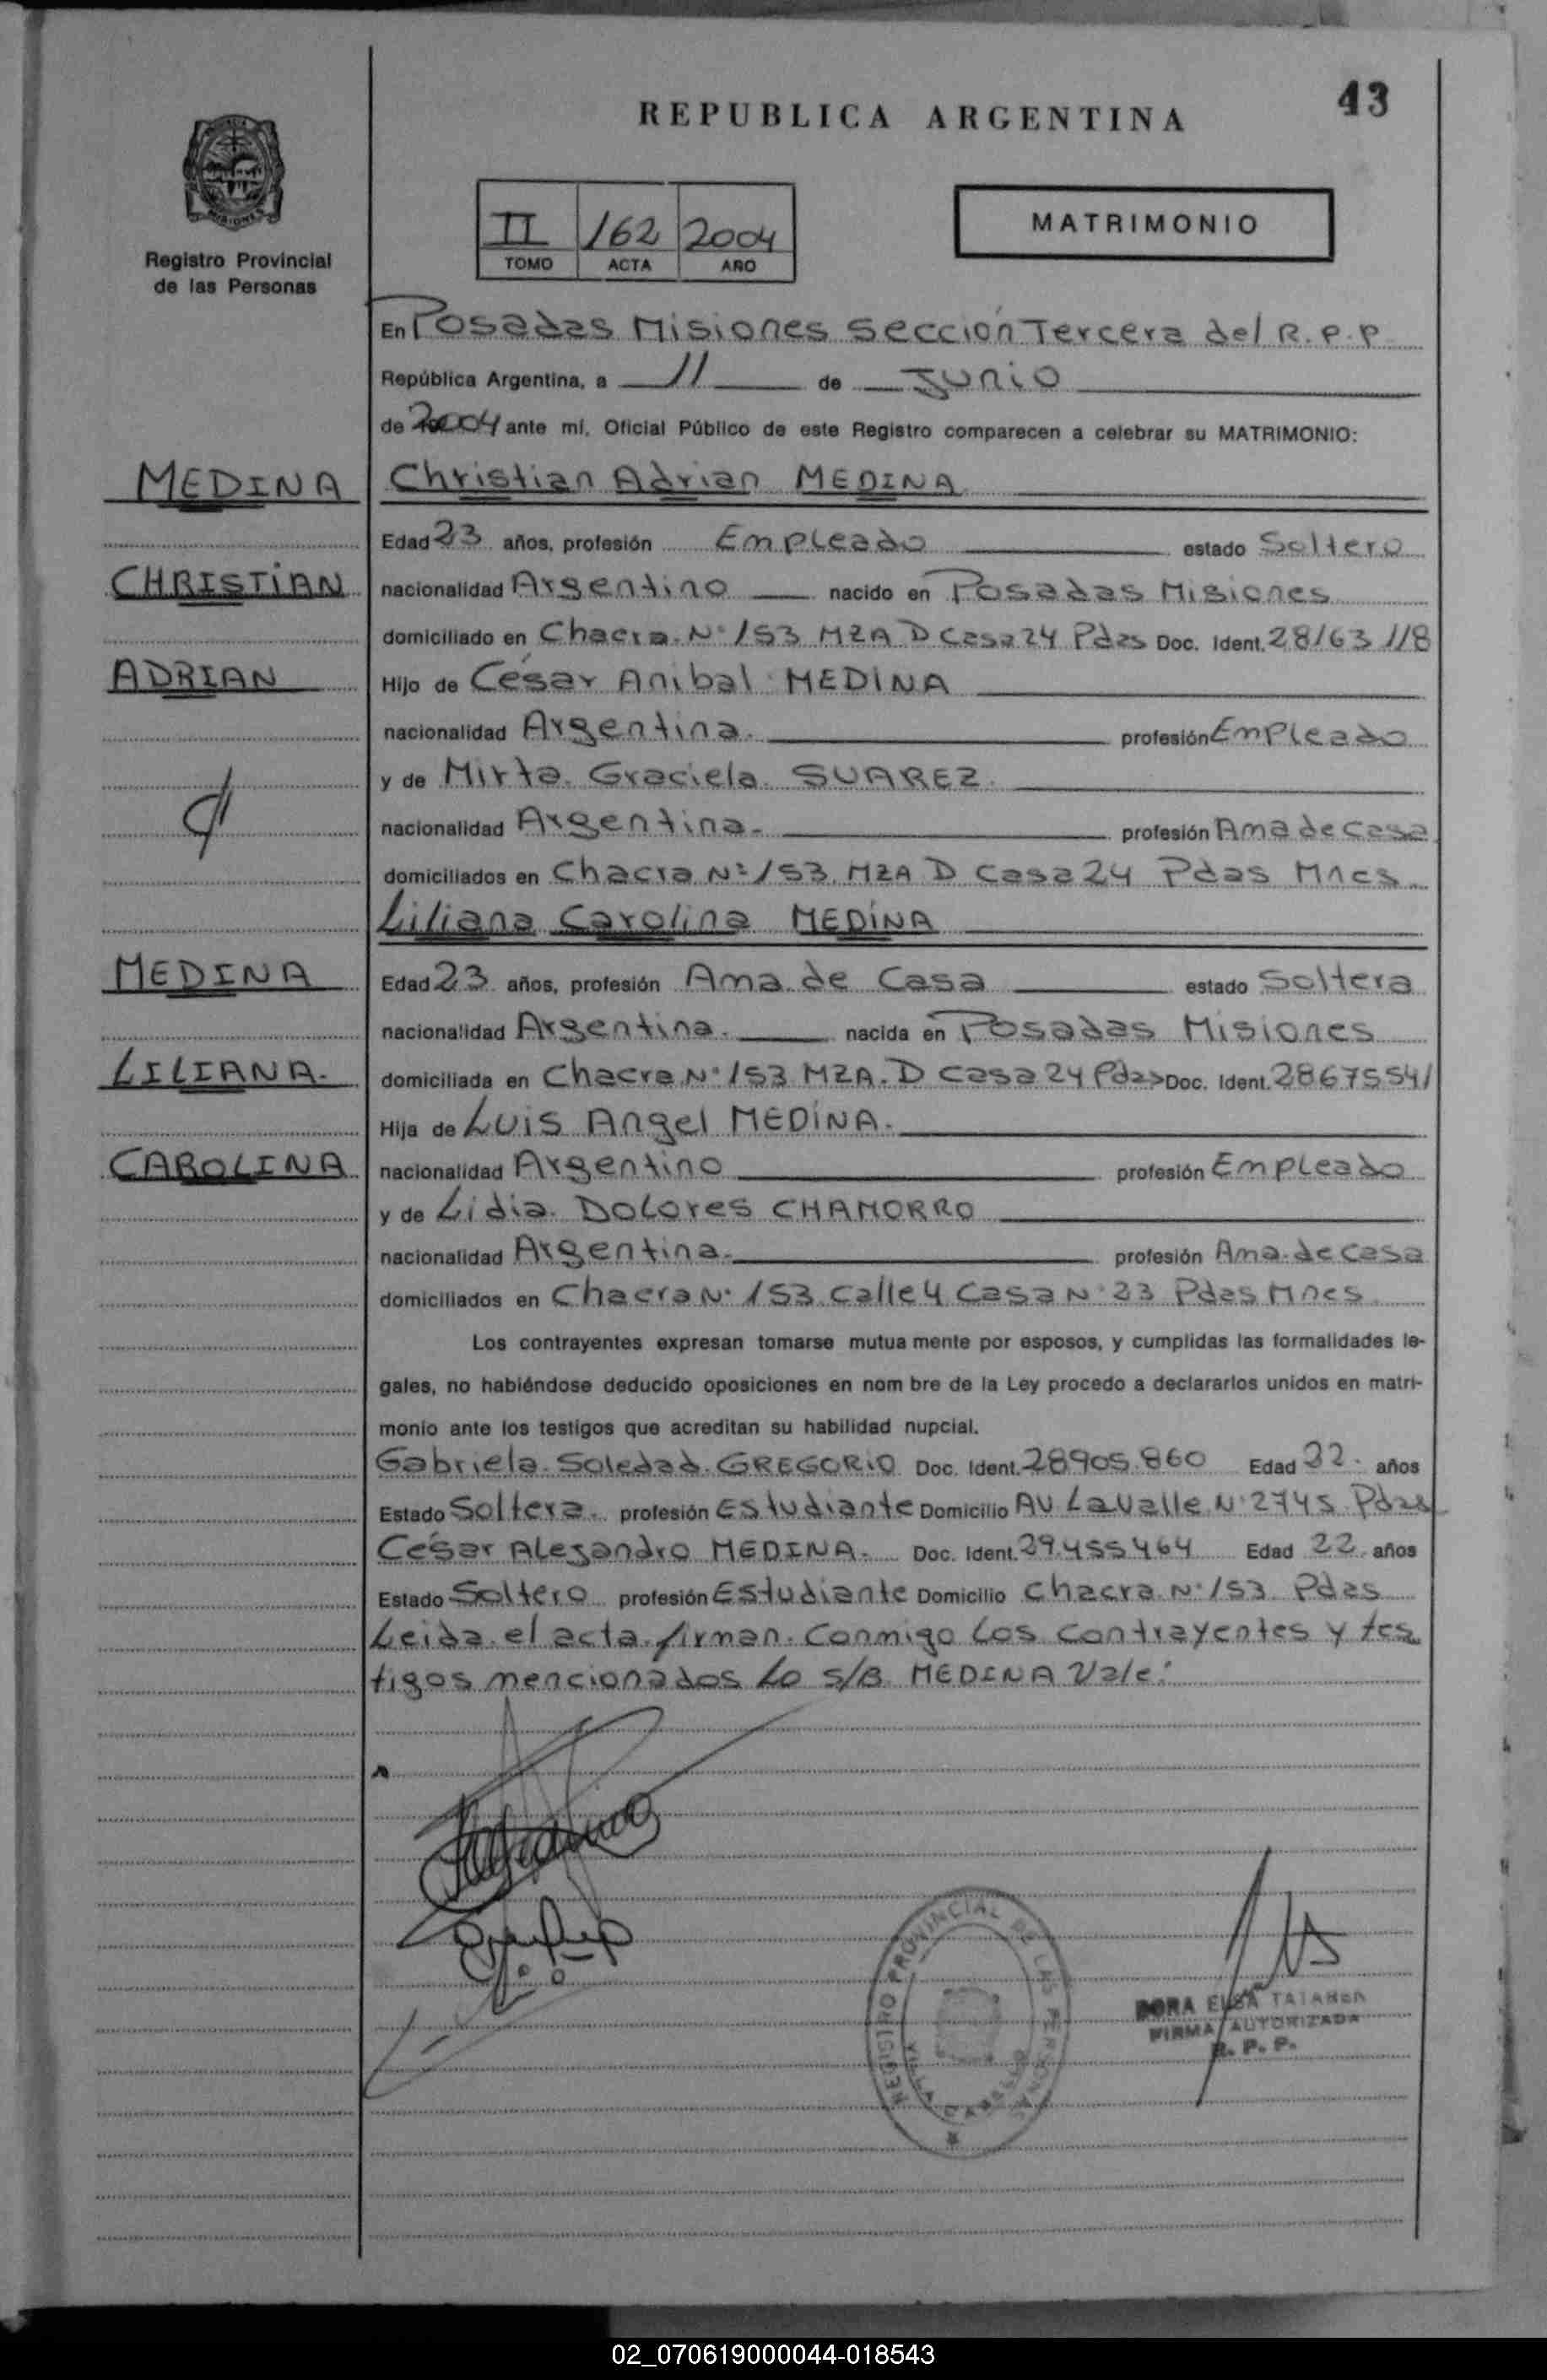 43
REPUBLICA ARGENTINA
MISIONES
II 162 2004
TOMO ACTA AÑO
MATRIMONIO
Registro Provincial
de las Personas
En Posadas Misiones Sección Tercera del R.P.P
República Argentina, a 11 de Junio
de 2004 ante mí, Oficial Público de este Registro comparecen a celebrar su MATRIMONIO:
MEDINA
Christian Adrian MEDINA
Edad 23 años, profesión Empleado estado Soltero
CHRISTIAN
nacionalidad Argentino nacido en Posadas Misiones
domiciliado en Chacra N° 153 MZA D Casa 24 Pdas Doc. Ident. 28163118
ADRIAN
Hijo de César Anibal MEDINA
nacionalidad Argentina. profesión Empleado
y de Mirta Graciela SUAREZ
nacionalidad Argentina. profesión Ama de Casa
domiciliados en Chacra N° 153 MZA D Casa 24 Pdas Mnes
Liliana Carolina MEDINA
MEDINA
Edad 23 años, profesión Ama de Casa estado Soltera
nacionalidad Argentina. nacida en Posadas Misiones
LILIANA.
domiciliada en Chacra N° 153 MZA. D Casa 24 Pdas Doc. Ident. 28675541
Hija de Luis Angel MEDINA.
CAROLINA
nacionalidad Argentino profesión Empleado
y de Lidia Dolores CHAMORRO
nacionalidad Argentina. profesión Ama de Casa
domiciliados en Chacra N° 153 Calle 4 Casa N° 23 Pdas Mnes
Los contrayentes expresan tomarse mutua mente por esposos, y cumplidas las formalidades le-
gales, no habiéndose deducido oposiciones en nom bre de la Ley procedo a declararlos unidos en matri-
monio ante los testigos que acreditan su habilidad nupcial.
Gabriela Soledad GREGORIO Doc. Ident. 28905.860 Edad 22 años
Estado Soltera. profesión Estudiante Domicilio AV Lavalle N° 2745 Pdas
César Alejandro MEDINA. Doc. Ident. 29.455464 Edad 22 años
Estado Soltero profesión Estudiante Domicilio Chacra N° 153 Pdas
Leida el acta firman Conmigo Los Contrayentes y tes
tigos mencionados Lo S/B MEDINA Vale:
REGISTRO PROVINCIAL DE LAS PERSONAS
VILLA CABELLO
DORA ELSA
FIRMA AUTORIZADA
R. P. P.
02_070619000044-018543